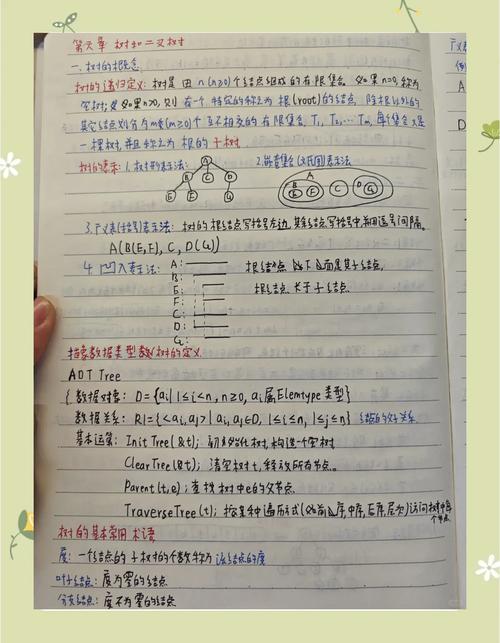 第六章 树和二叉树
一、树的概念
树的递归定义: 树是由n(n≥0)个结点组成的有限集合。如果n=0, 称为
空树; 如果n>0, 则有一个特定的称为根(root)的结点, 除根以外的
其它结点划分为m(m≥0)个互不相交的有限集合 T₁, T₂, … Tm, 每个集合又是
一棵树, 并且称之为根的子树
树的表示: 1. 树形表示法: 2. 嵌套集合(文氏图)表示法
A
B C D
E F G
A B E F C D G
3. 广义表(括号)表示法: 树的根结点写括号左边, 其余结点写括号中, 并用逗号间隔。
A(B(E,F),C,D(G))
4. 凹入表示法: A:
B:
E:
F:
C:
D:
G:
根结点
根结点长于子结点
抽象数据类型 树的定义
ADT Tree
{ 数据对象: D={ai|1≤i≤n, n≥0, ai属Elemtype类型}
数据关系: R1={<ai,aj>|ai,aj∈D, 1≤i≤n, 1≤j≤n}
基本运算: InitTree(&t): 初始化树, 构造一个空树
ClearTree(&t): 清空树t, 释放所有节点。
Parent(t,e): 查找树中e的父节点
TraverseTree(t): 按某种遍历方式(如前序,中序,后序,层次)访问树中每个节点
树的基本常用术语
度: 一个结点的子树的个数称为该结点的度
叶子结点: 度为零的结点
分支结点: 度不为零的结点
广义表
(例
A
D